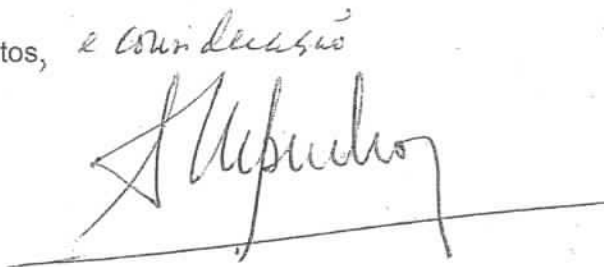 tos, e consideração